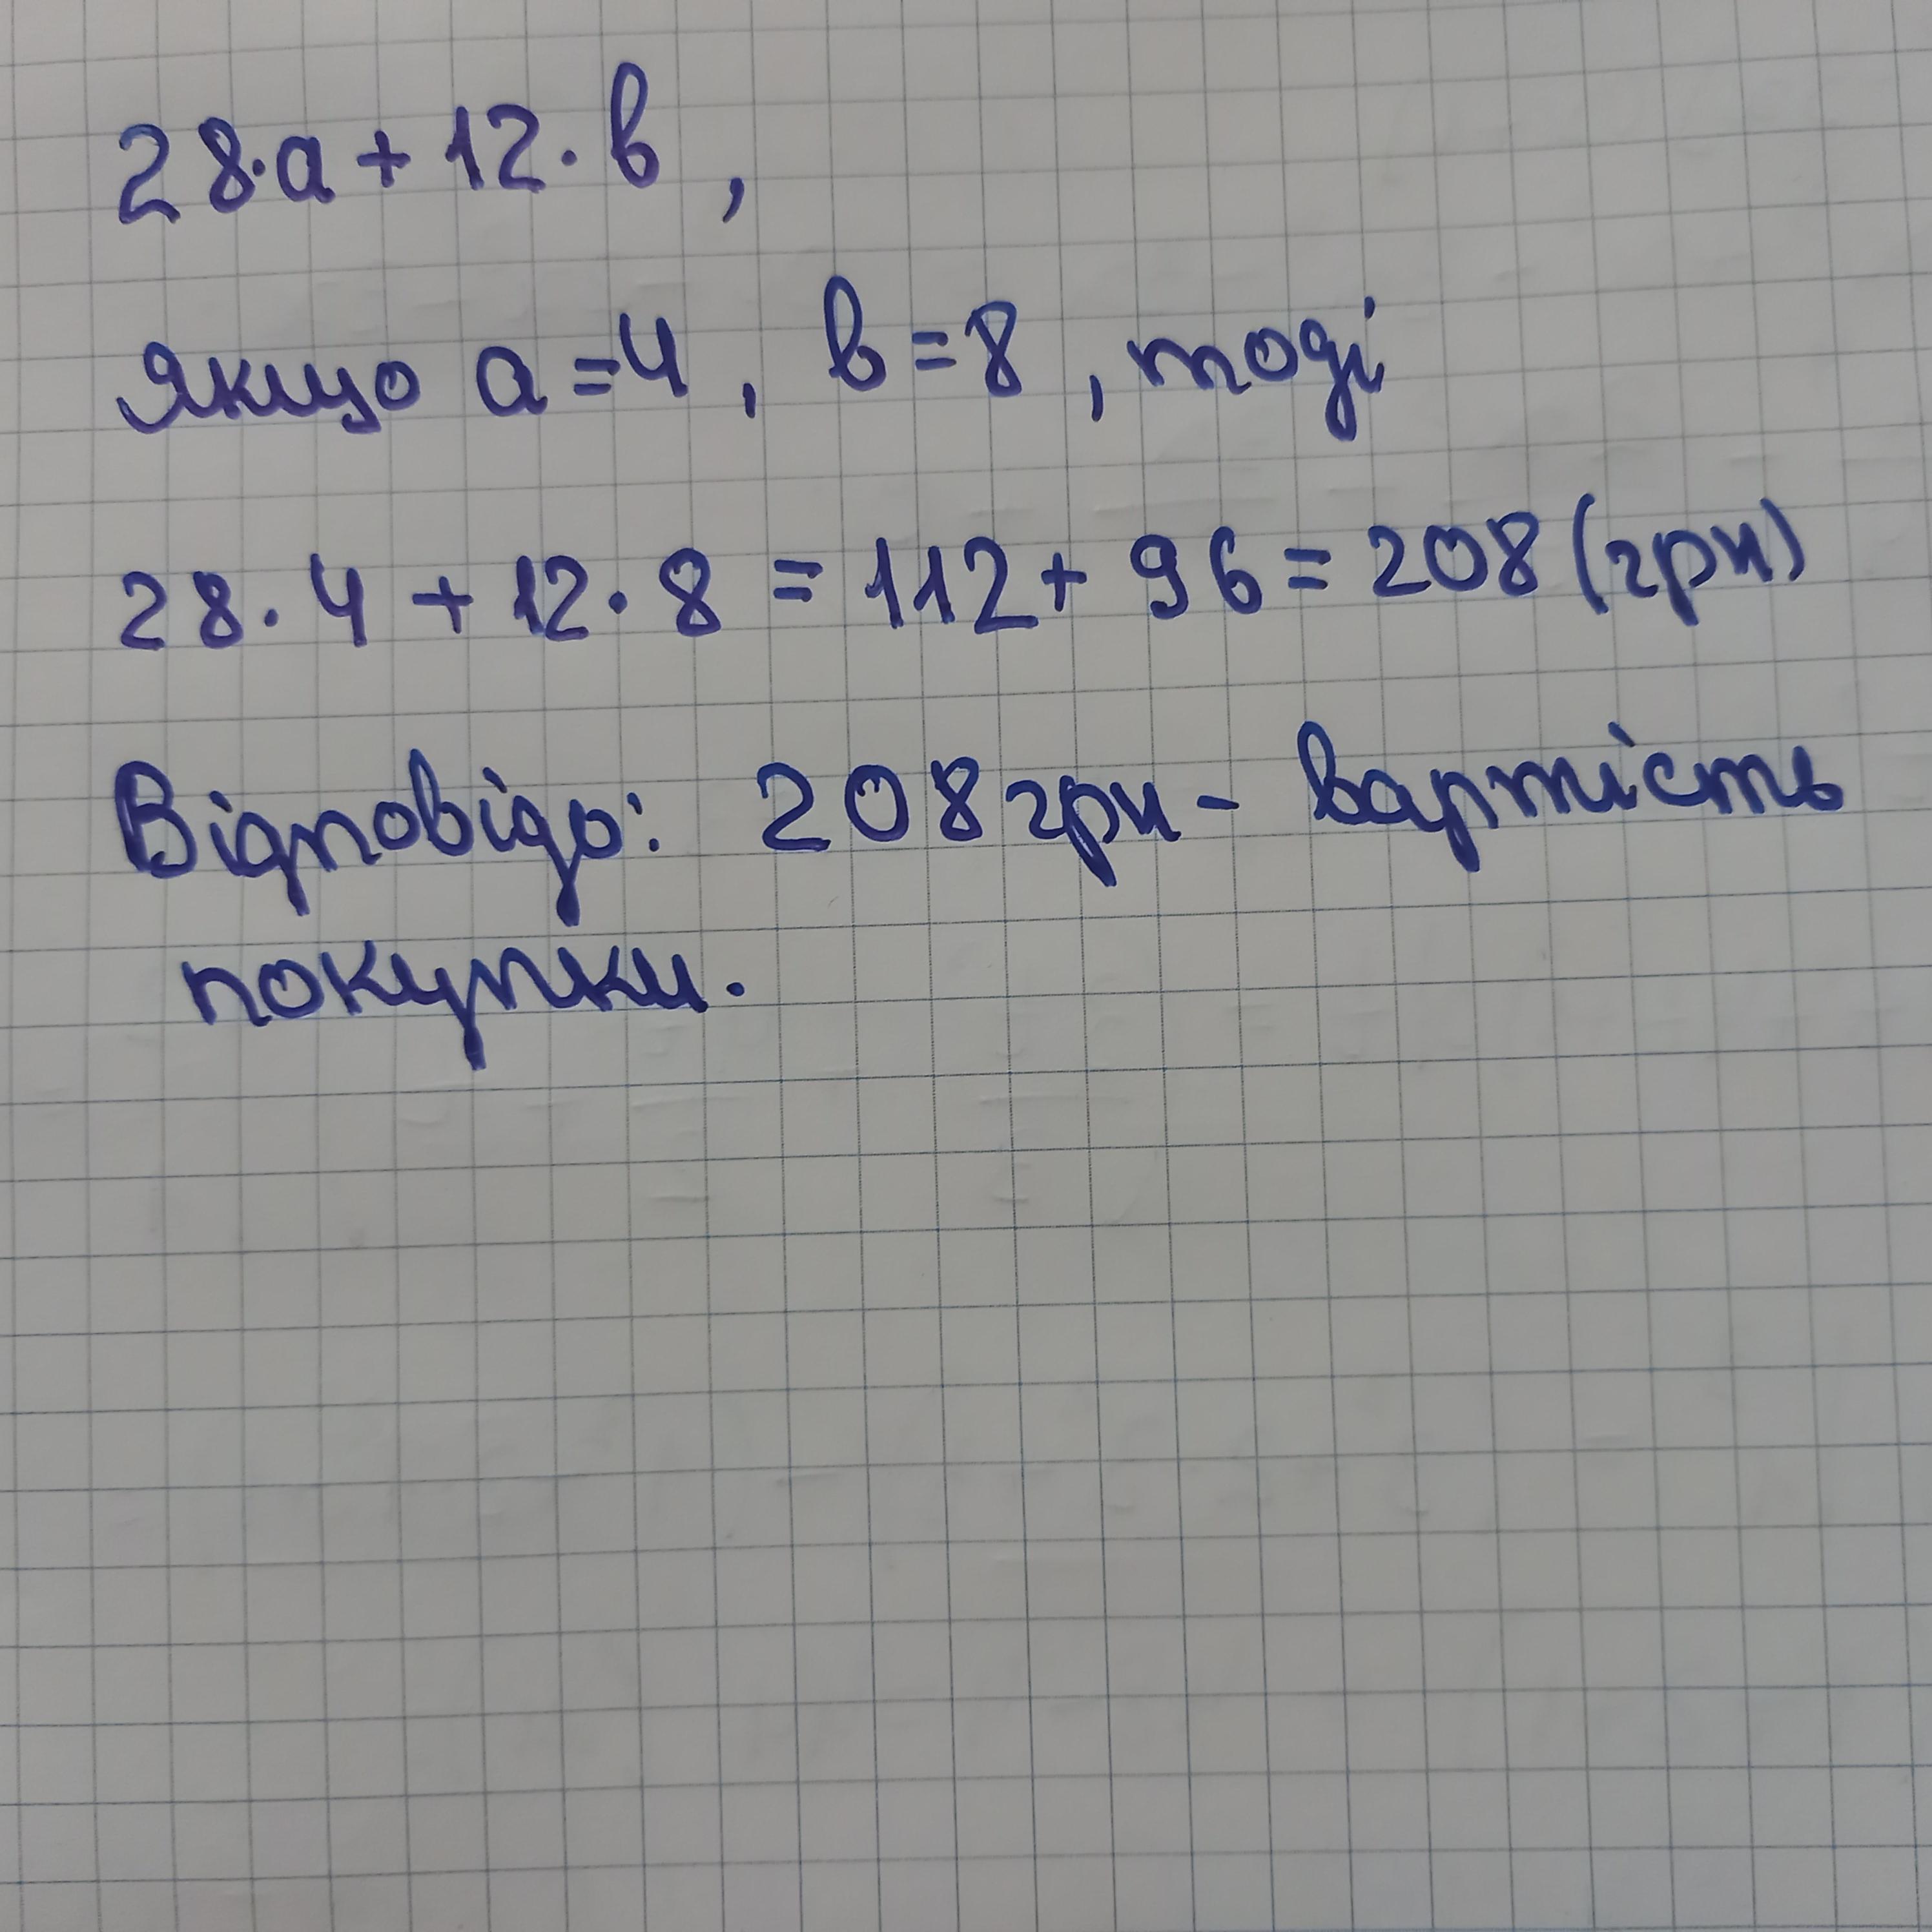 28·a + 12·b,
Якщо a=4, b=8, тоді
28·4 + 12·8 = 112 + 96 = 208 (грн)
Відповідь: 208 грн - вартість
покупки.